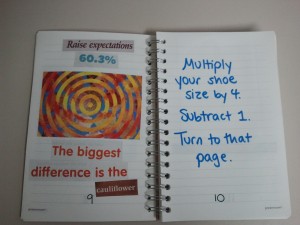 Raise expectations
60.3%
The biggest
difference is the
cauliflower
9
Multiply
your shoe
size by 4.
Subtract 1.
Turn to that
page.
10